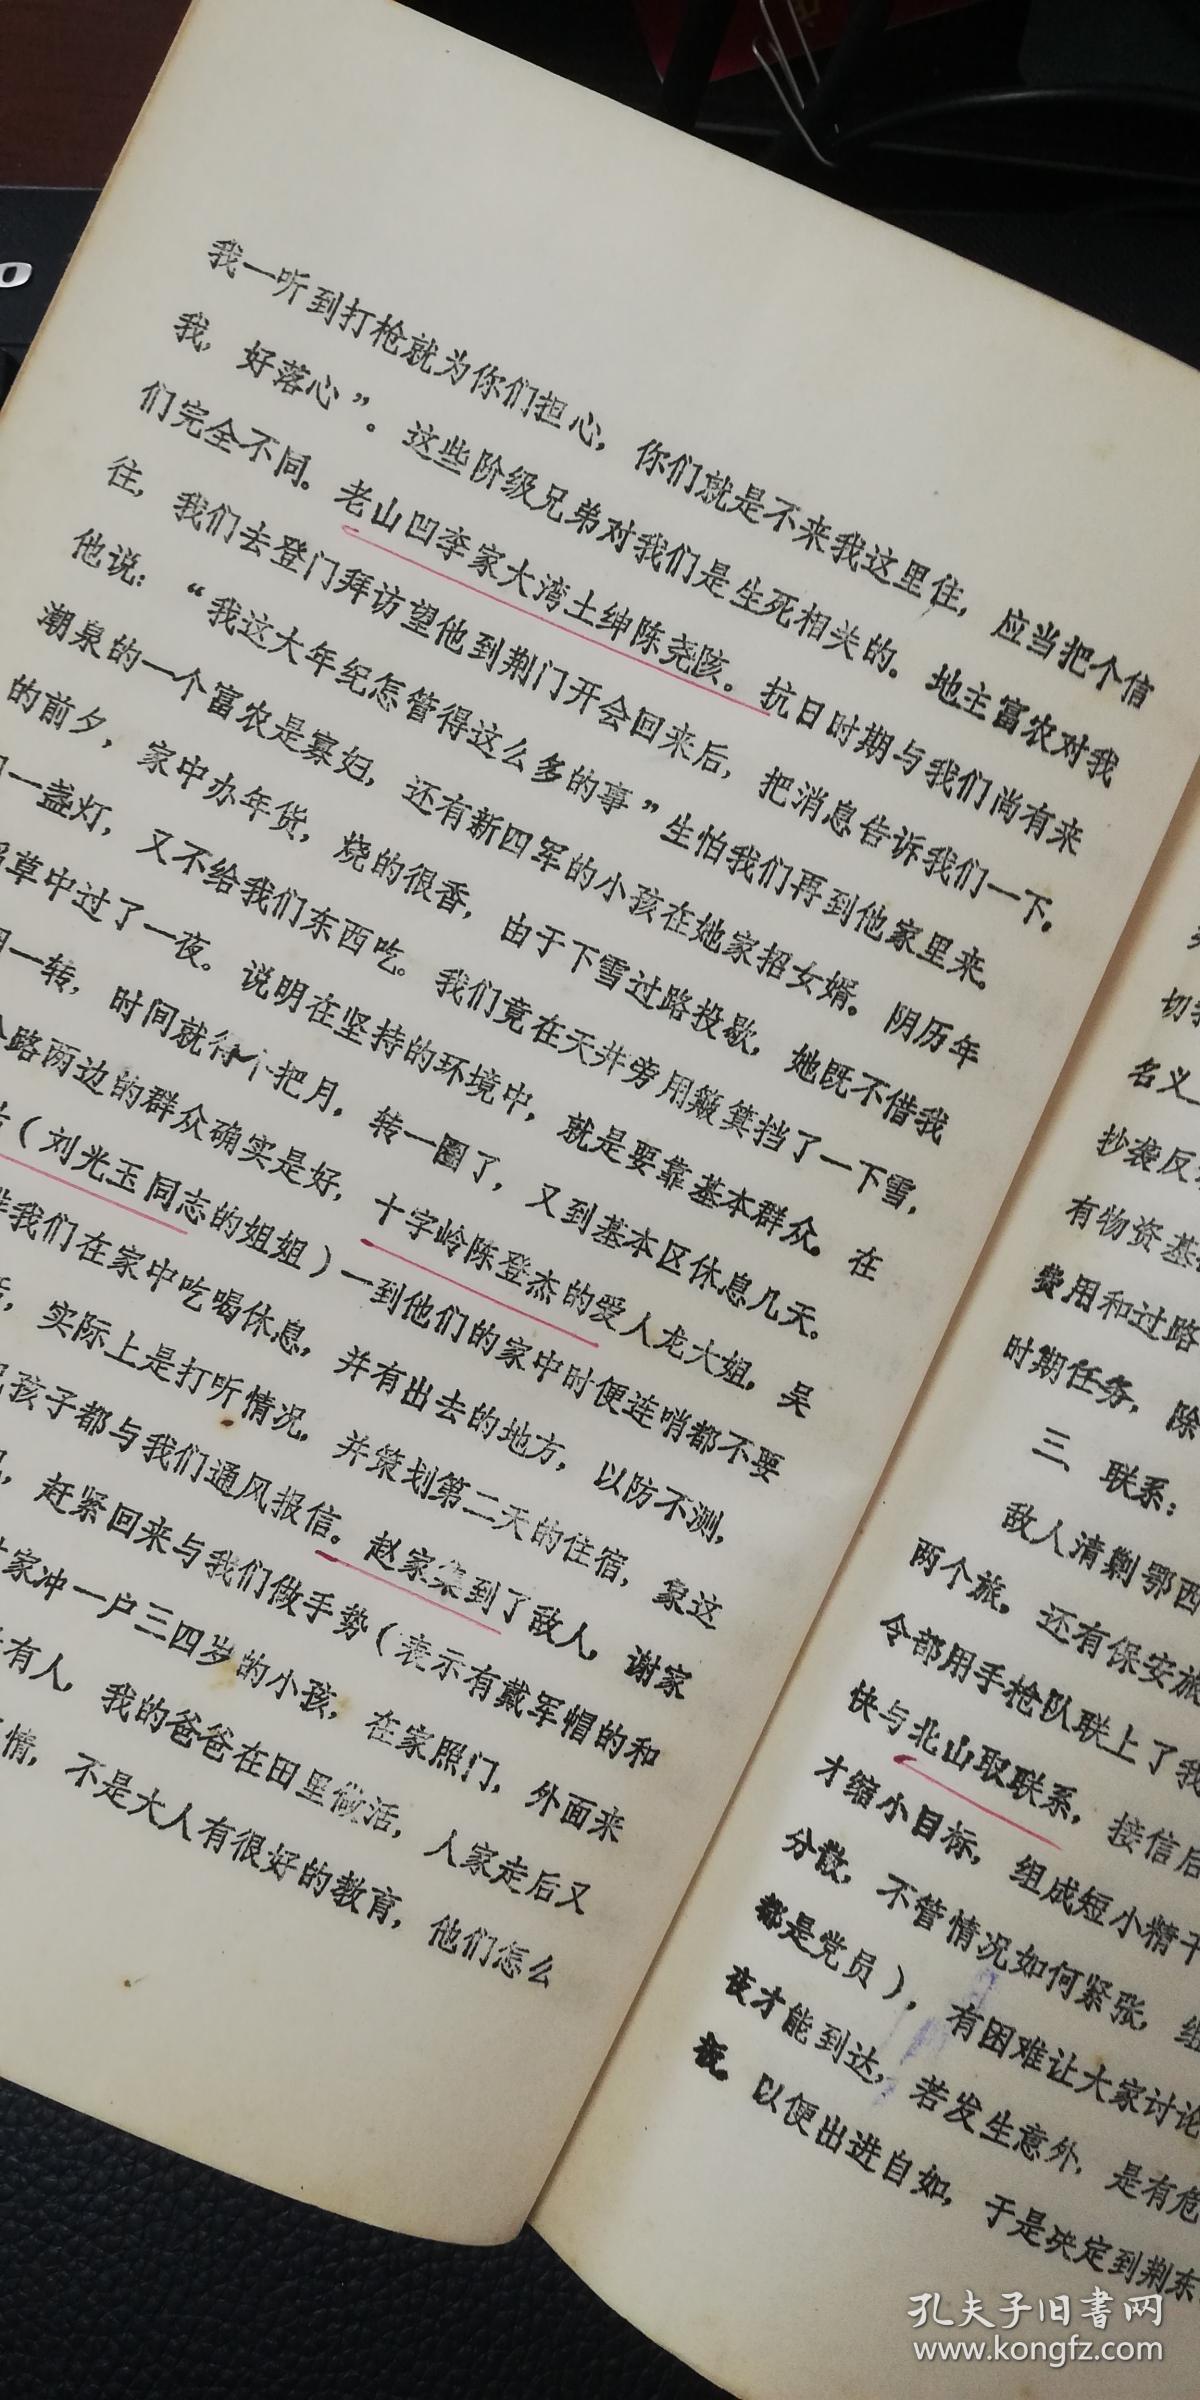 我一听到打枪就为你们担心，你们就是不来我这里住，应当把个信
我，好落心”。这些阶级兄弟对我们是生死相关的。地主富农对我
们完全不同。老山凹李家大湾土绅陈尧陔。抗日时期与我们尚有来
往，我们去登门拜访望他到荆门开会回来后，把消息告诉我们一下。
他说：“我这大年纪怎管得这么多的事”生怕我们再到他家里来。
潮泉的一个富农是寡妇，还有新四军的小孩在她家招女婿。阴历年
的前夕，家中办年货，烧的很香，由于下雪过路投歇，她既不借我
一盏灯，又不给我们东西吃。我们竟在天井旁用簸箕挡了一下雪，
草中过了一夜。说明在坚持的环境中，就是要靠基本群众。在
一转，时间就得个把月，转一圈了，又到基本区休息几天。
路两边的群众确实是好，十字岭陈登杰的爱人龙大姐，吴
（刘光玉同志的姐姐）一到他们的家中时便连哨都不要
我们在家中吃喝休息，并有出去的地方，以防不测，
，实际上是打听情况，并策划第二天的住宿，象这
孩子都与我们通风报信。赵家集到了敌人，谢家
，赶紧回来与我们做手势（表示有戴军帽的和
家冲一户三四岁的小孩，在家照门，外面来
有人，我的爸爸在田里做活，人家走后又
情，不是大人有很好的教育，他们怎么
切
名义
抄袭反
有物资基
费用和过路
时期任务，除
三、联系：
敌人清剿鄂西
两个旅。还有保安旅
令部用手枪队联上了我
快与北山取联系，接信后
才缩小目标，组成短小精干
分散，不管情况如何紧张，组
都是党员），有困难让大家讨论
夜才能到达，若发生意外，是有危
极。以便出进自如，于是决定到荆东
孔夫子旧书网
www.kongfz.com